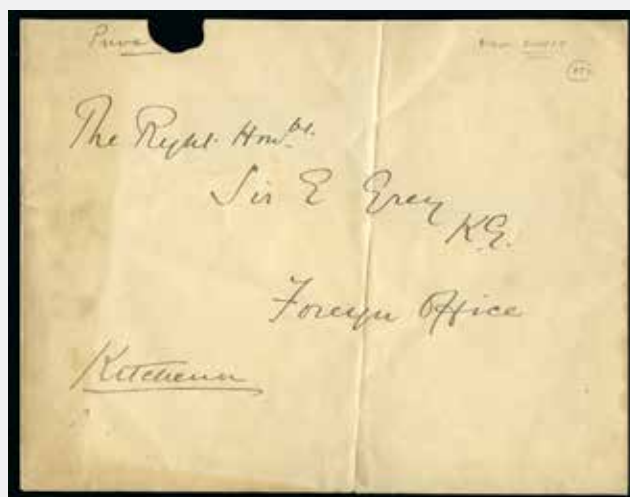 Priva
The Right Honble.
Sir E Grey
K.G.
Foreign Office
Kitchener